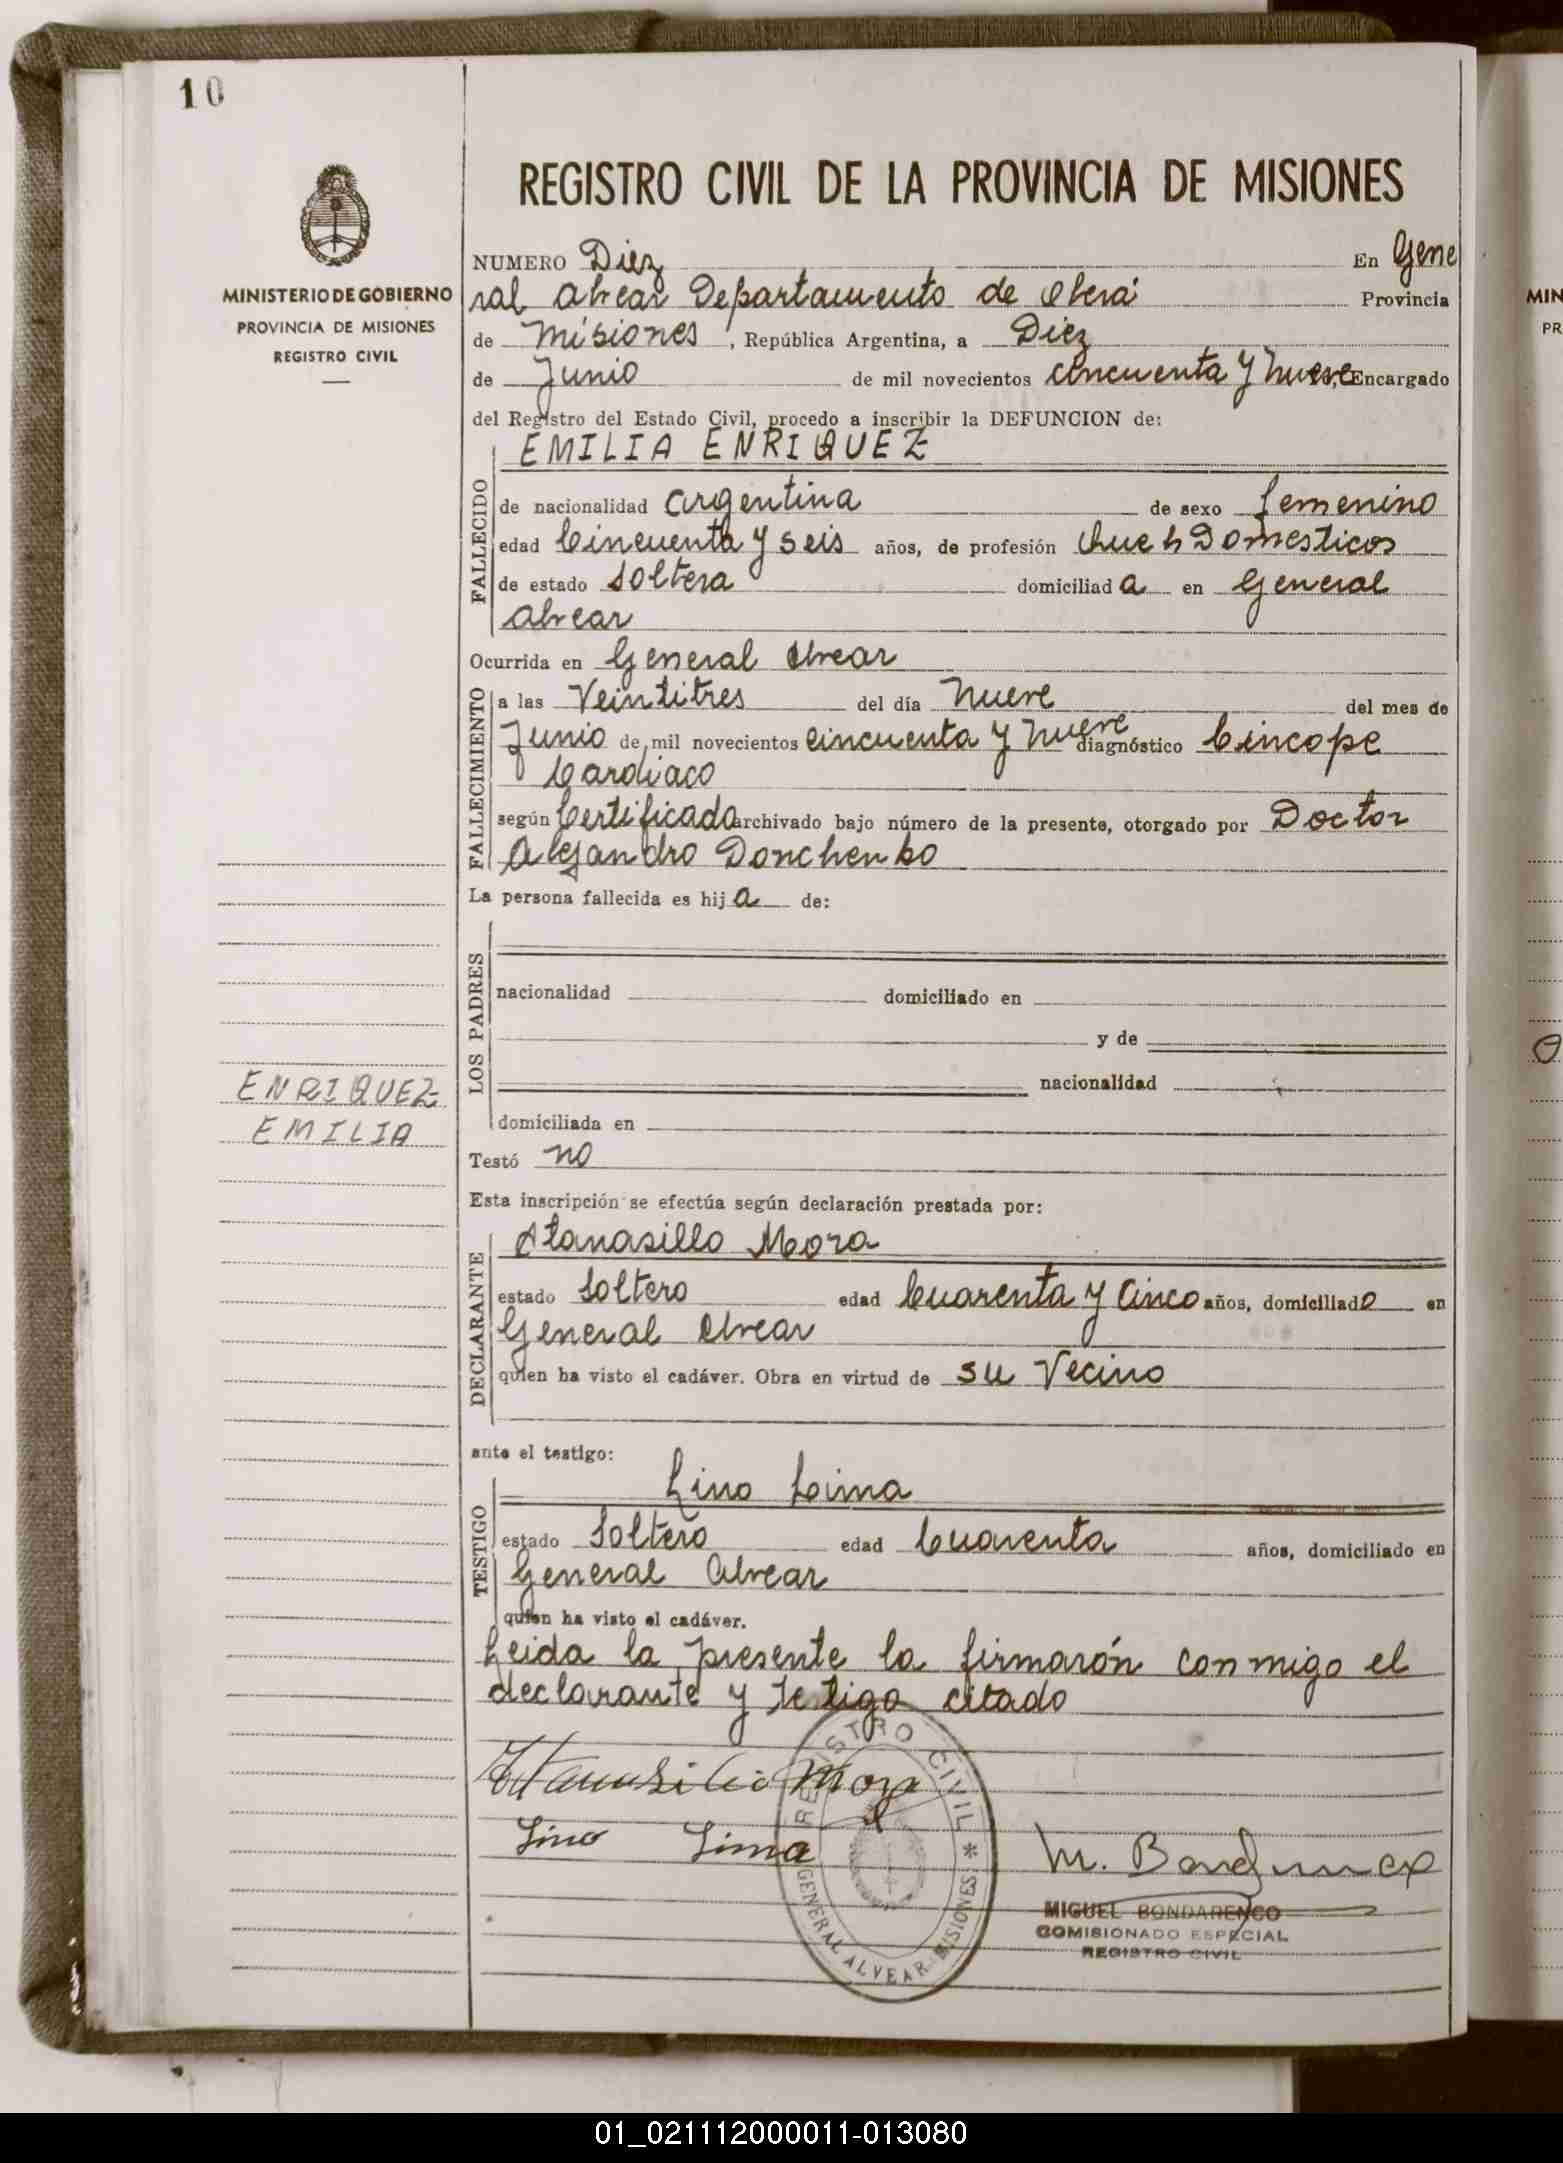 10
REGISTRO CIVIL DE LA PROVINCIA DE MISIONES
MINISTERIO DE GOBIERNO
PROVINCIA DE MISIONES
REGISTRO CIVIL
NUMERO Diez En Gene
ral Alvear Departamento de Oberá Provincia
de Misiones, República Argentina, a Diez
de Junio de mil novecientos cincuenta y nueve, Encargado
del Registro del Estado Civil, procedo a inscribir la DEFUNCION de:
EMILIA ENRIQUEZ
FALLECIDO
de nacionalidad argentina de sexo femenino
edad Cincuenta y seis años, de profesión Queh Domesticos
de estado Soltera domiciliada en General
Alvear
Ocurrida en General Alvear
FALLECIMIENTO
a las Veintitres del día nueve del mes de
Junio de mil novecientos cincuenta y nueve diagnóstico Cincope
Cardiaco
según Certificado archivado bajo número de la presente, otorgado por Doctor
Alejandro Donchenko
La persona fallecida es hija de:
LOS PADRES
nacionalidad domiciliado en
y de
nacionalidad
domiciliada en
ENRIQUEZ
EMILIA
Testó no
Esta inscripción se efectúa según declaración prestada por:
DECLARANTE
Atanasillo Mora
estado Soltero edad Cuarenta y Cinco años, domiciliado en
General Alvear
quien ha visto el cadáver. Obra en virtud de su Vecino
ante el testigo:
TESTIGO
Lino Lima
estado Soltero edad Cuarenta años, domiciliado en
General Alvear
quien ha visto el cadáver.
Leida la presente la firmarón conmigo el
declarante y testigo citado
Atanasilio Mora
Lino Lima
REGISTRO CIVIL * GENERAL ALVEAR MISIONES
M. Bondarenco
MIGUEL BONDARENCO
COMISIONADO ESPECIAL
REGISTRO CIVIL
MIN
PR
01_021112000011-013080